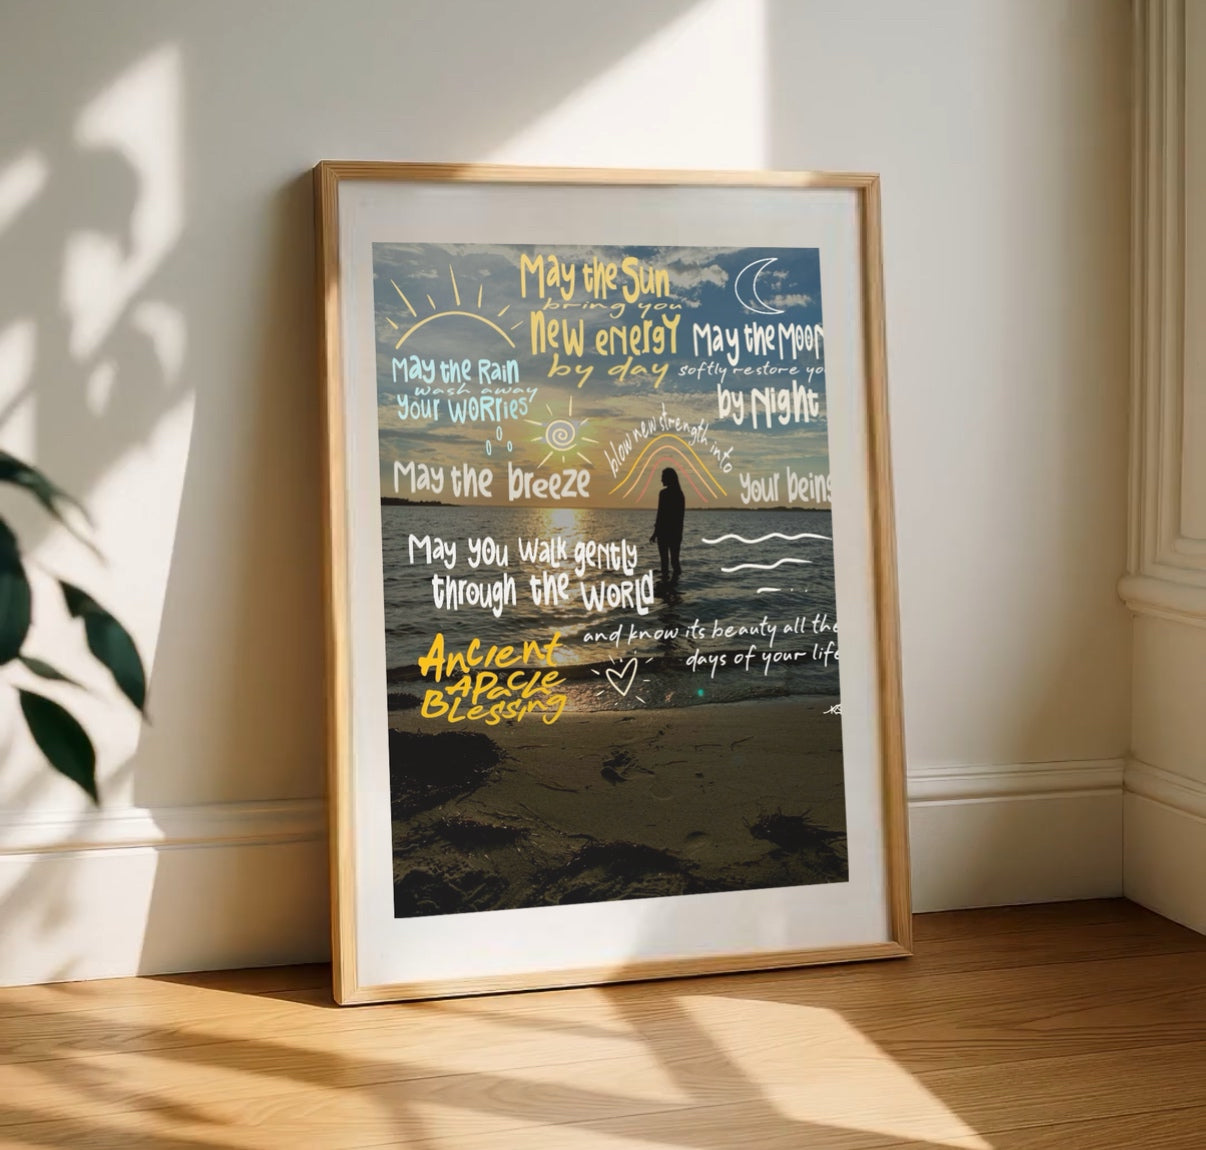 May the Sun
bring you
New energy
by day
May the Moon
softly restore yo
by Night
May the Rain
wash away
your worries
May the breeze
blow new strength into
your being
May you walk gently
through the world
and know its beauty all the
days of your life
Ancient
Apache
Blessing